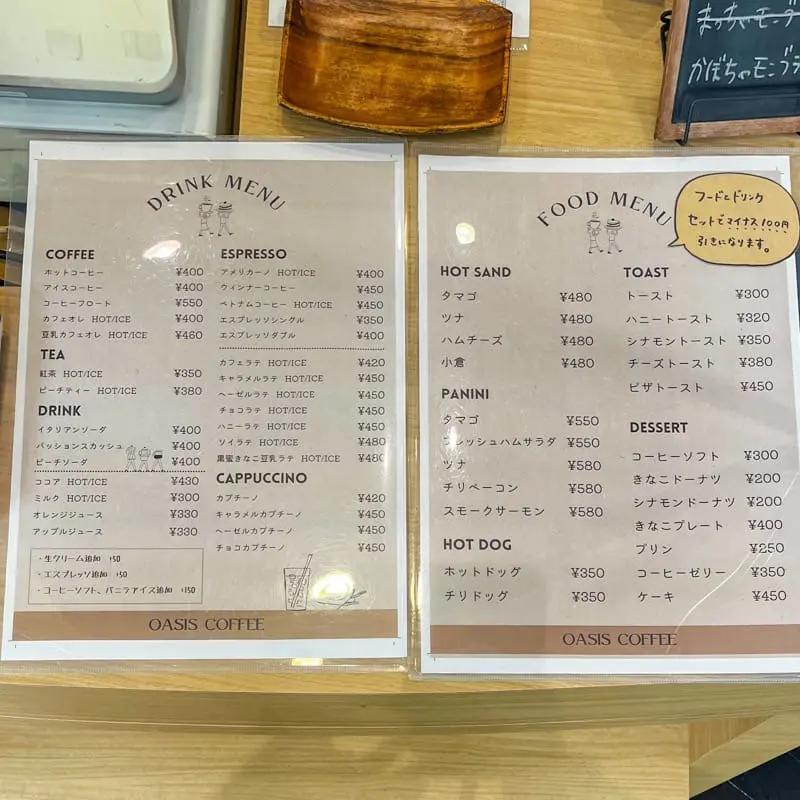 まっちゃモンブ
かぼちゃモンブラ
DRINK MENU
COFFEE
ホットコーヒー ¥400
アイスコーヒー ¥400
コーヒーフロート ¥550
カフェオレ HOT/ICE ¥400
豆乳カフェオレ HOT/ICE ¥460
TEA
紅茶 HOT/ICE ¥350
ピーチティー HOT/ICE ¥380
DRINK
イタリアンソーダ ¥400
パッションスカッシュ ¥400
ピーチソーダ ¥400
ココア HOT/ICE ¥430
ミルク HOT/ICE ¥300
オレンジジュース ¥330
アップルジュース ¥330
・生クリーム追加 +50
・エスプレッソ追加 +50
・コーヒーソフト、バニラアイス追加 +150
ESPRESSO
アメリカーノ HOT/ICE ¥400
ウィンナーコーヒー ¥450
ベトナムコーヒー HOT/ICE ¥450
エスプレッソシングル ¥350
エスプレッソダブル ¥400
カフェラテ HOT/ICE ¥420
キャラメルラテ HOT/ICE ¥450
ヘーゼルラテ HOT/ICE ¥450
チョコラテ HOT/ICE ¥450
ハニーラテ HOT/ICE ¥450
ソイラテ HOT/ICE ¥480
黒蜜きなこ豆乳ラテ HOT/ICE ¥480
CAPPUCCINO
カプチーノ ¥420
キャラメルカプチーノ ¥450
ヘーゼルカプチーノ ¥450
チョコカプチーノ ¥450
OASIS COFFEE
FOOD MENU
フードとドリンク
セットでマイナス100円
引きになります。
HOT SAND
タマゴ ¥480
ツナ ¥480
ハムチーズ ¥480
小倉 ¥480
PANINI
タマゴ ¥550
フレッシュハムサラダ ¥550
ツナ ¥580
チリベーコン ¥580
スモークサーモン ¥580
HOT DOG
ホットドッグ ¥350
チリドッグ ¥350
TOAST
トースト ¥300
ハニートースト ¥320
シナモントースト ¥350
チーズトースト ¥380
ピザトースト ¥450
DESSERT
コーヒーソフト ¥300
きなこドーナツ ¥200
シナモンドーナツ ¥200
きなこプレート ¥400
プリン ¥250
コーヒーゼリー ¥350
ケーキ ¥450
OASIS COFFEE